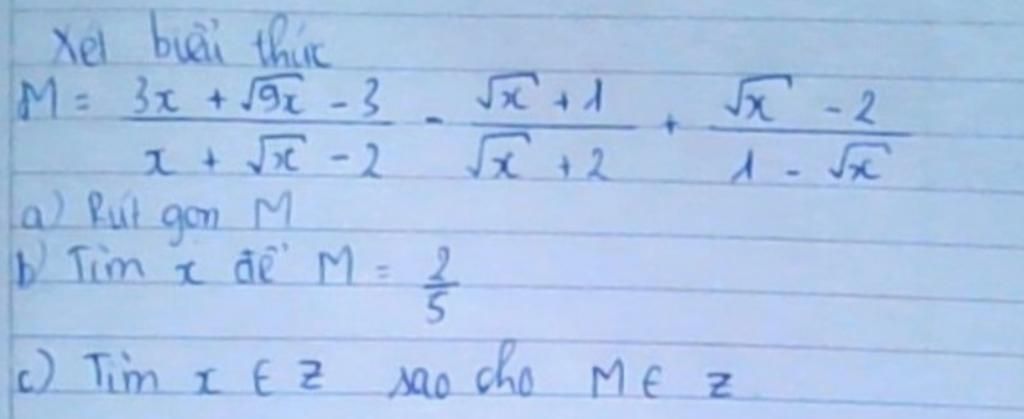 Xét biểu thức
M = \frac{3x + \sqrt{9x} - 3}{x + \sqrt{x} - 2} - \frac{\sqrt{x} + 1}{\sqrt{x} + 2} + \frac{\sqrt{x} - 2}{1 - \sqrt{x}}
a) Rút gọn M
b) Tìm x để M = \frac{2}{5}
c) Tìm x ∈ Z sao cho M ∈ Z